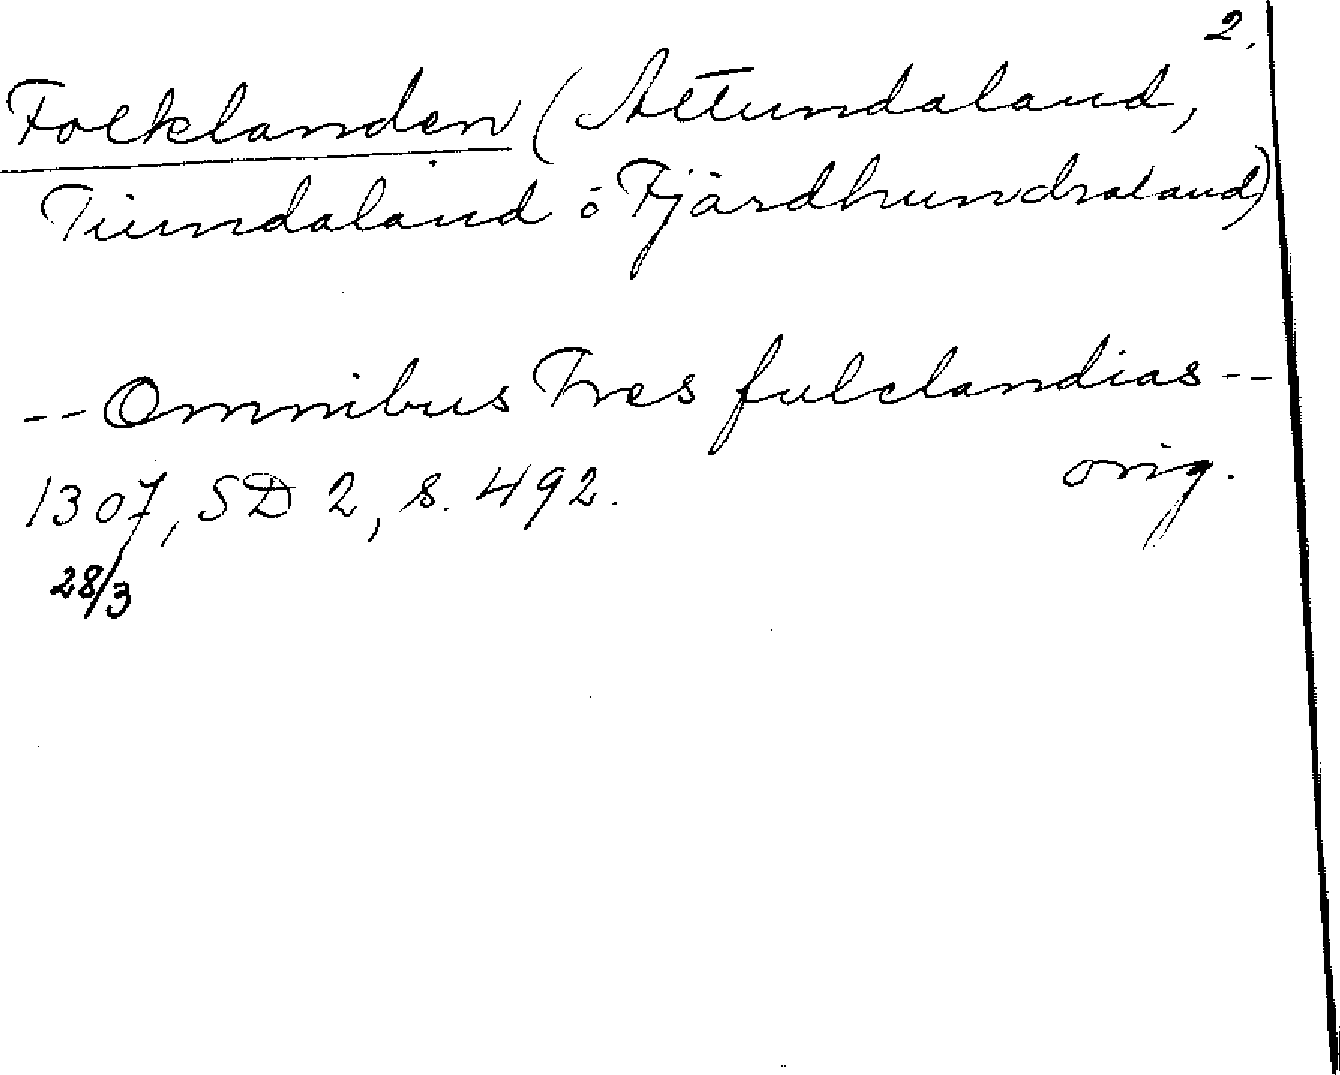 2.
Folklanden (Attundaland,
Tiundaland o Fjärdhundraland)
-- Omnibus Tres fulclandias --
1307, SD 2, s. 492. orig.
28/3